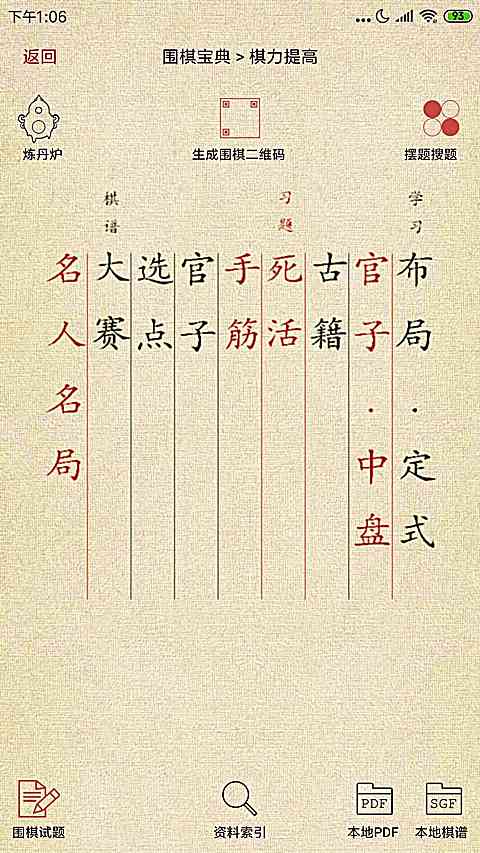 下午1:06
93
返回
围棋宝典 > 棋力提高
炼丹炉
生成围棋二维码
摆题搜题
学习
布局·定式
官子·中盘
古籍
习题
死活
手筋
官子
选点
棋谱
大赛
名人名局
围棋试题
资料索引
PDF
本地PDF
SGF
本地棋谱